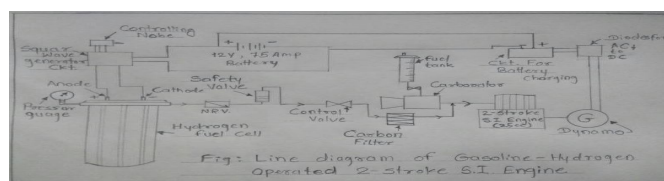 Controlling
Nobe
Squar
Wave
generator
Ckt.
12V, 7.5 Amp
Battery
fuel
tank
Ckt. For
Battery
charging
Diodes for
AC to
DC
Anode
Cathode
Safety
Valve
Carborator
Pressur
guage
NRV.
Control
Valve
Carbon
Filter
2-stroke
S.I Engine
G
Dynamo
Hydrogen
Fuel Cell
Fig: Line diagram of Gasoline-Hydrogen
Operated 2-stroke S.I. Engine